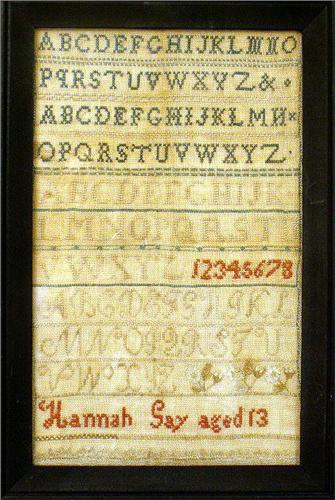 ABCDEFGHIJKLMNO
PQRSTUVWXYZ&
ABCDEFGHIJKLMN
OPQRSTUVWXYZ
ABCDEFGHIJK
LMNOPQRSTU
VWXYZ 12345678
ABCDEFGHIJKL
MNOPQRSTU
VWXYZ
Hannah Say aged 13